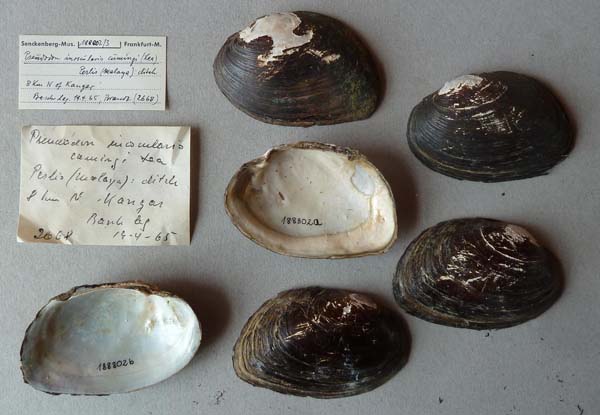 Senckenberg-Mus. 188802/3 Frankfurt-M.
Pseudodon inoscularis cumingi (Lea)
Perlis (Malaya) ditch
8 km N of Kangar
leg. 19.4.65, Brandt (2668)
Pseudodon
cumingi Lea
Perlis (Malaya): ditch
8 km N Kangar
leg
2668 19-4-65
188802a
188802b